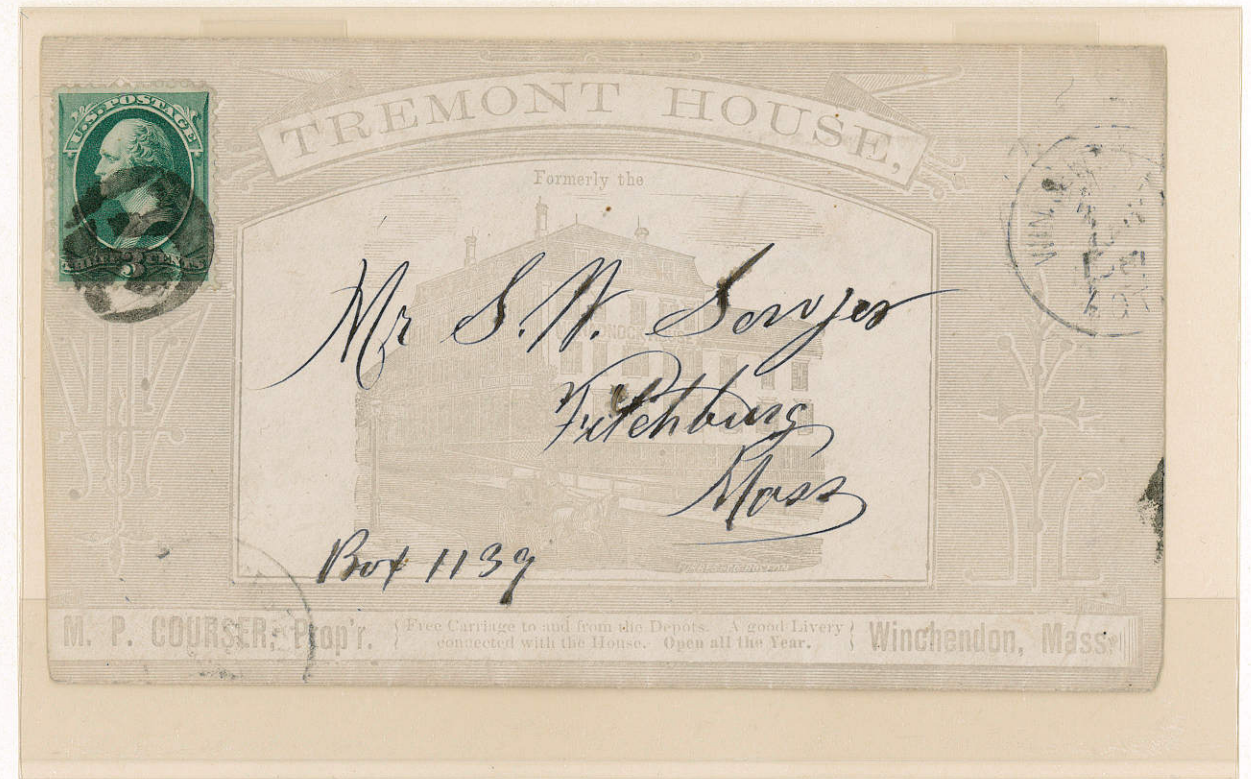 U.S. POSTAGE
TREMONT HOUSE,
Formerly the
Mr S. W. Sawyer
Fitchburg
Mass
Box 1139
M. P. COURSER, Prop'r.
Free Carriage to and from the Depots. A good Livery
connected with the House. Open all the Year.
Winchendon, Mass.